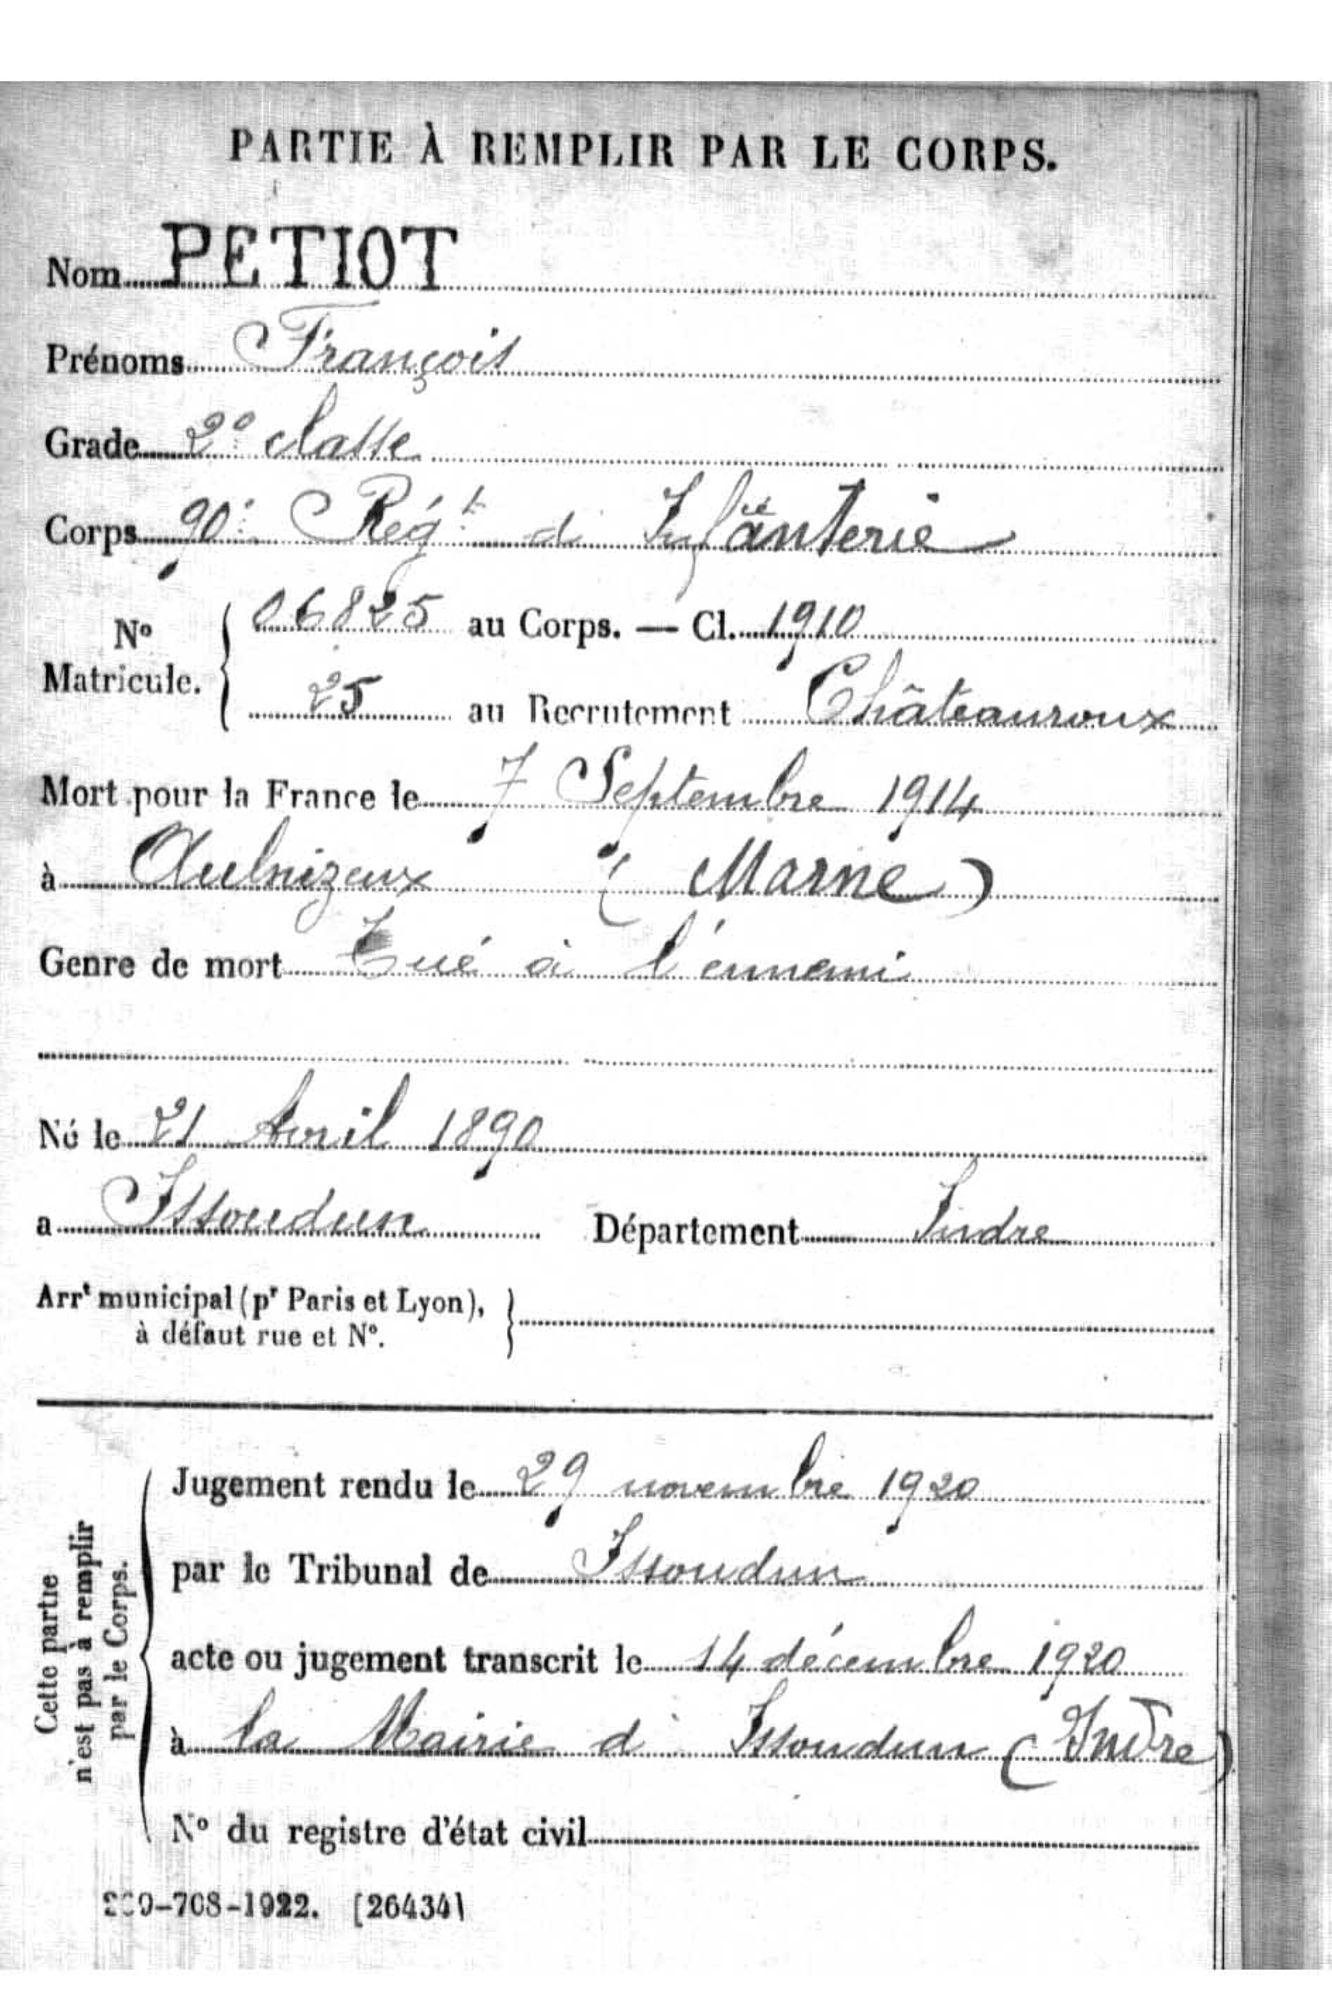 PARTIE À REMPLIR PAR LE CORPS.
Nom PETIOT
Prénoms François
Grade 2e classe
Corps 90e Régt d'Infanterie
No Matricule. 06825 au Corps. — Cl. 1910
25 au Recrutement Châteauroux
Mort pour la France le 7 Septembre 1914
à Aulnizeux (Marne)
Genre de mort Tué à l'ennemi
Né le 21 Avril 1890
a Issoudun Département Indre
Arrt municipal (pr Paris et Lyon),
à défaut rue et No.
Cette partie
n'est pas à remplir
par le Corps.
Jugement rendu le 29 novembre 1920
par le Tribunal de Issoudun
acte ou jugement transcrit le 14 décembre 1920
à la Mairie d'Issoudun (Indre)
No du registre d'état civil
-708-1922. [26434]